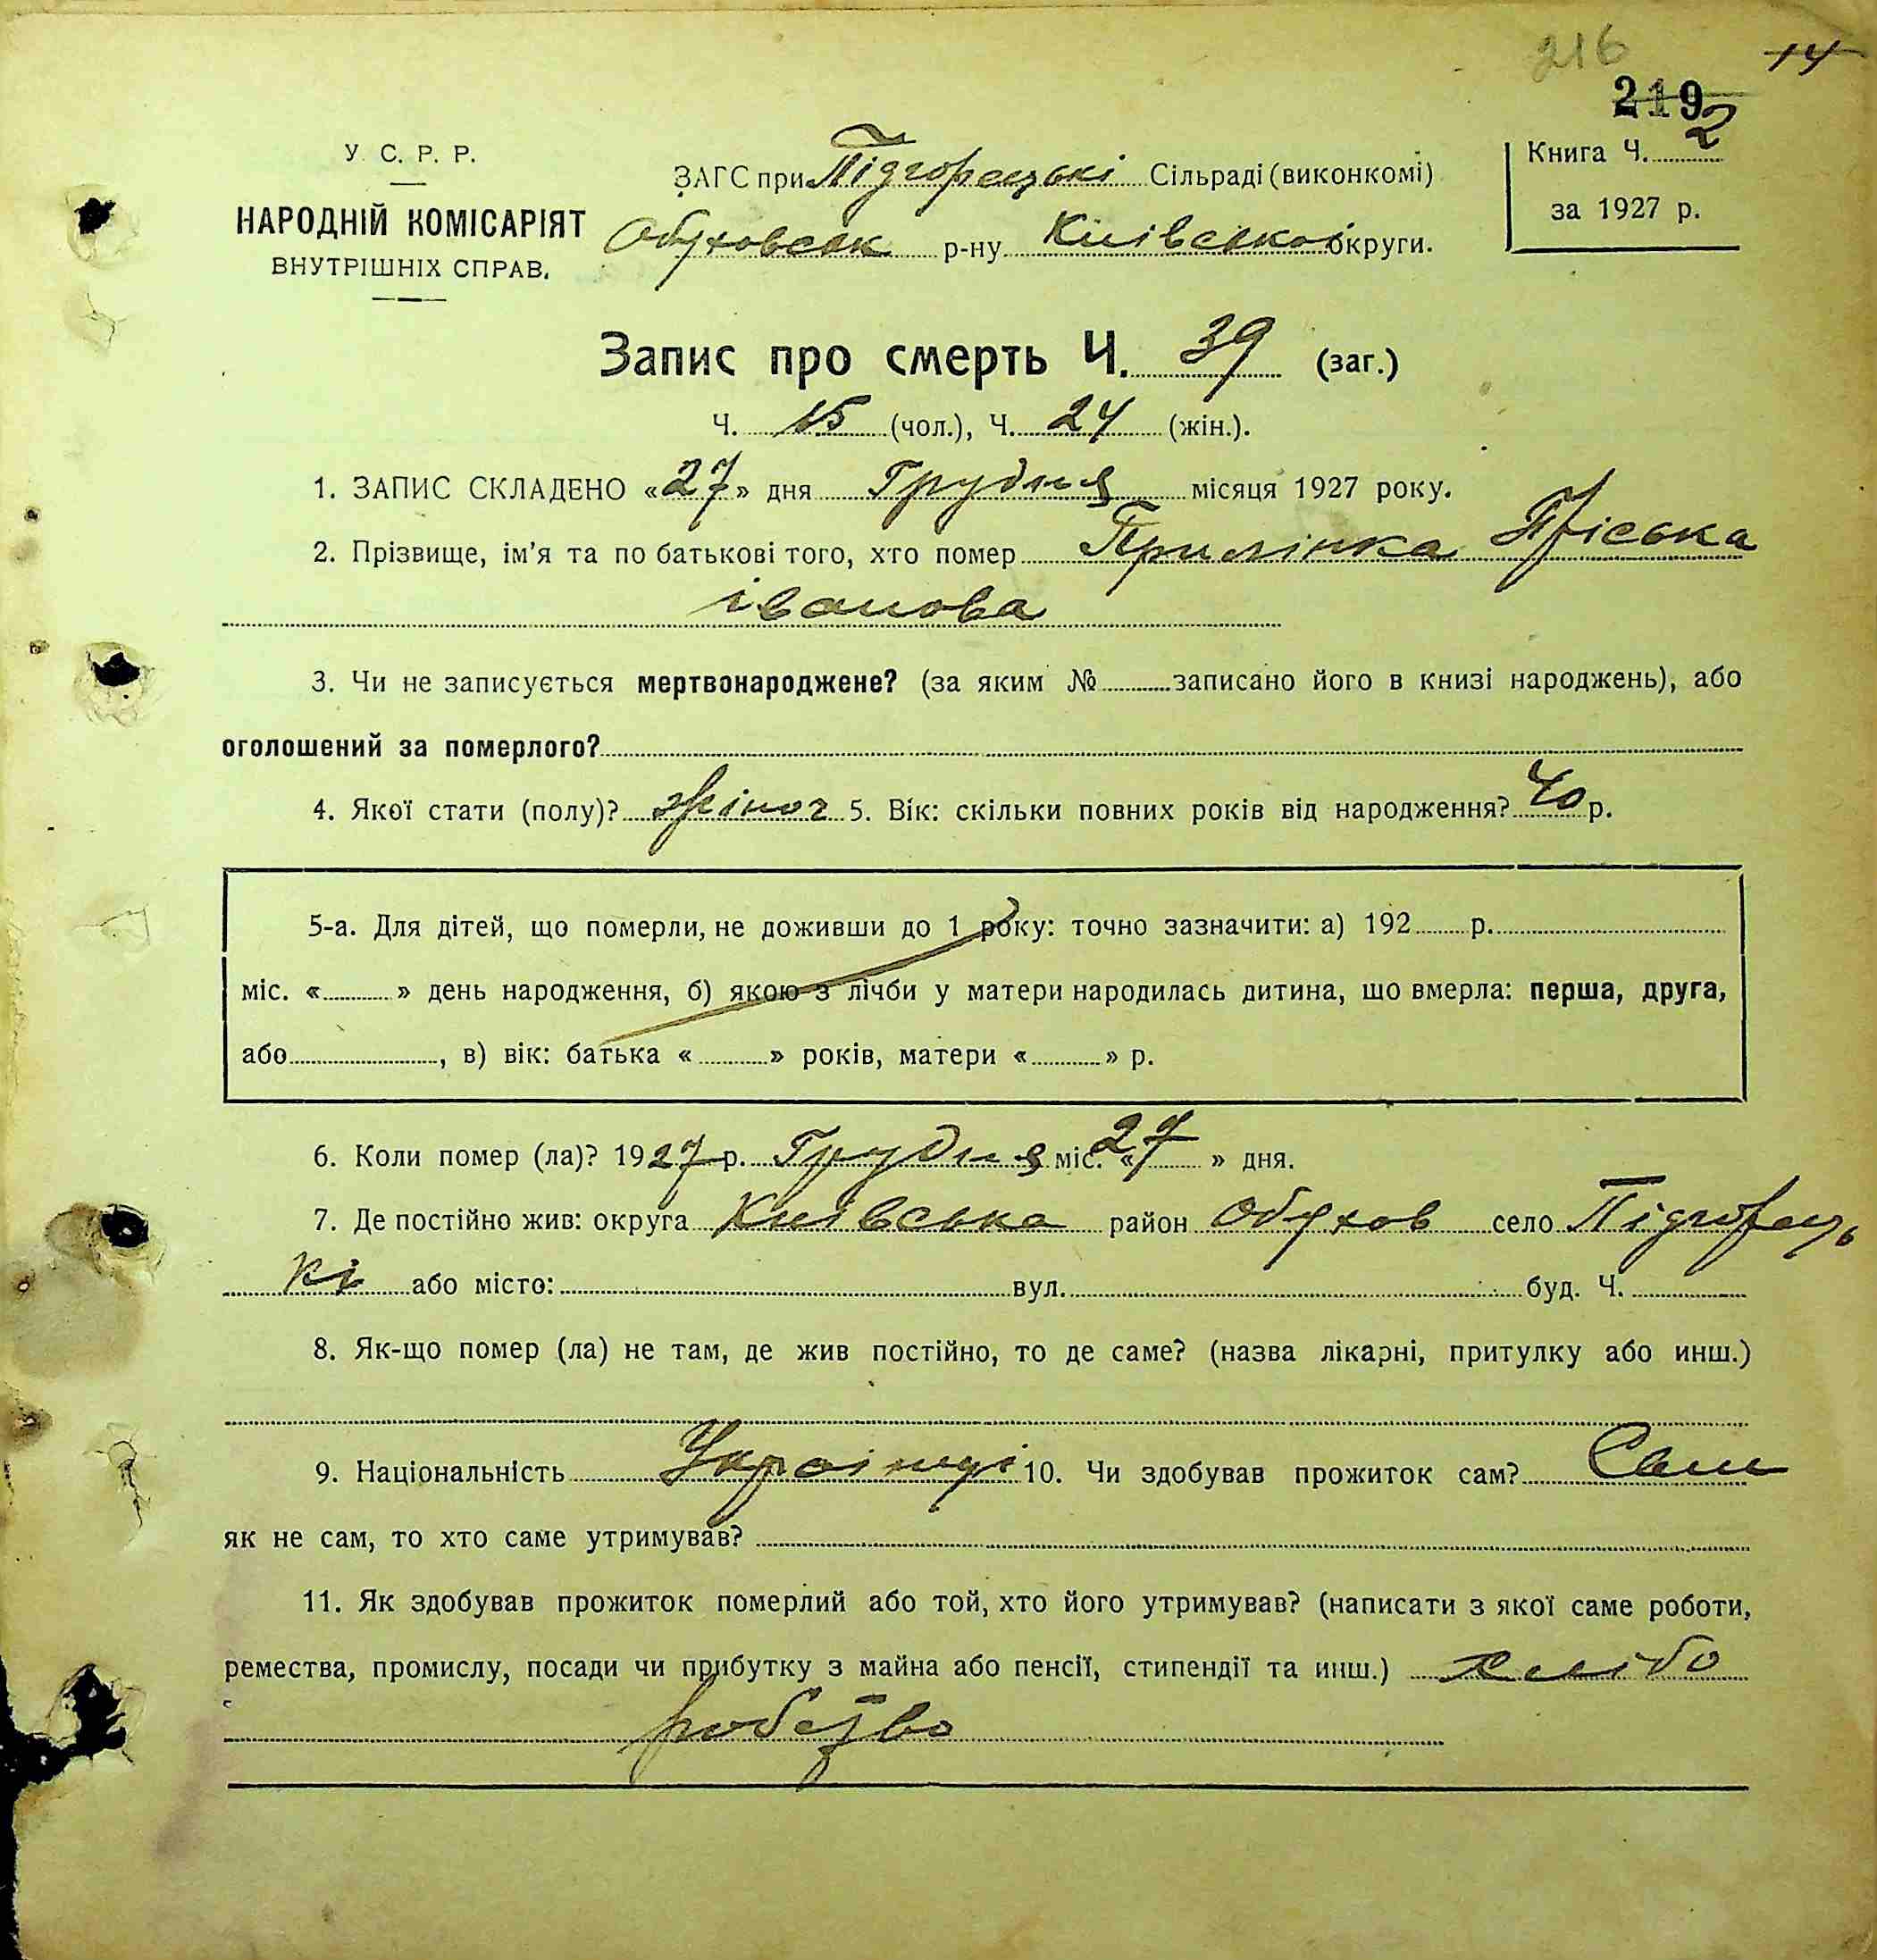 216 14
219
У. С. Р. Р.
НАРОДНІЙ КОМІСАРІЯТ
ВНУТРІШНІХ СПРАВ.
ЗАГС при Підгорецькі Сільраді (виконкомі)
Обуховськ р-ну Київської округи.
Книга Ч. 2
за 1927 р.
Запис про смерть Ч. 39 (заг.)
Ч. 15 (чол.), Ч. 24 (жін.).
1. ЗАПИС СКЛАДЕНО «27» дня Грудня місяця 1927 року.
2. Прізвище, ім'я та по батькові того, хто помер Прилінка Пріська
іванова
3. Чи не записується мертвонароджене? (за яким № записано його в книзі народжень), або
оголошений за померлого?
4. Якої стати (полу)? жіноч 5. Вік: скільки повних років від народження? 40 р.
5-а. Для дітей, що померли, не доживши до 1 року: точно зазначити: а) 192 р.
міс. « » день народження, б) якою з лічби у матери народилась дитина, що вмерла: перша, друга,
або , в) вік: батька « » років, матери « » р.
6. Коли помер (ла)? 1927 р. Грудня міс. «27» дня.
7. Де постійно жив: округа Київська район Обухов село Підгорець
кі або місто: вул. буд. Ч.
8. Як-що помер (ла) не там, де жив постійно, то де саме? (назва лікарні, притулку або инш.)
9. Національність Украінці 10. Чи здобував прожиток сам? Сам
як не сам, то хто саме утримував?
11. Як здобував прожиток померлий або той, хто його утримував? (написати з якої саме роботи,
ремества, промислу, посади чи прибутку з майна або пенсії, стипендії та инш.) хлібо
робство